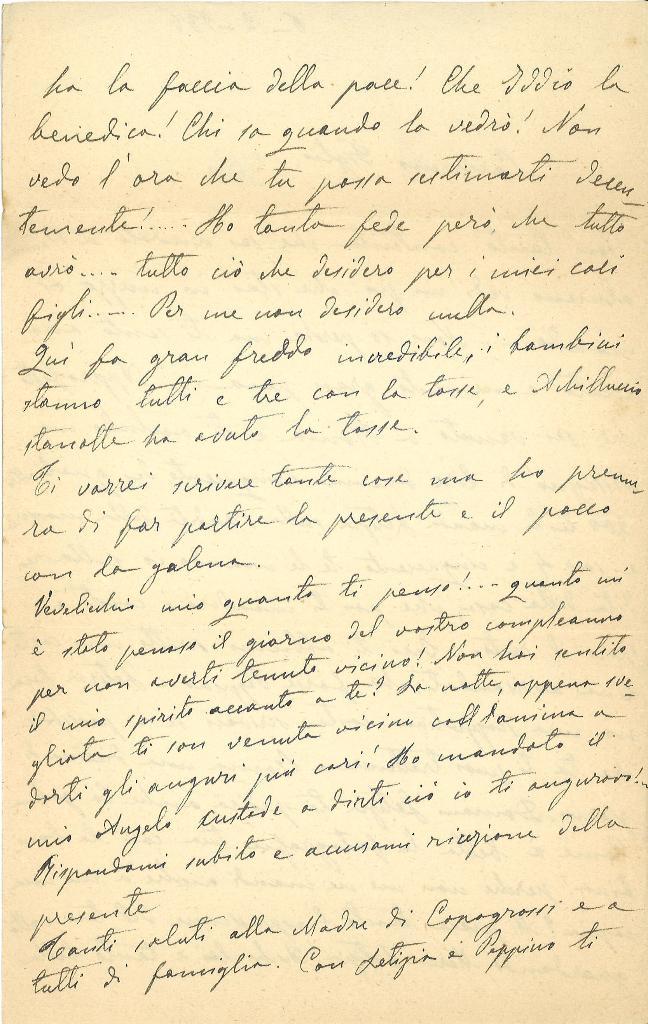 ha la faccia della pace! Che Iddio la
benedica! Chi sa quando la vedrò! Non
vedo l'ora che tu possa sistimarti decen-
temente!..... Ho tanta fede però, che tutto
avrò..... tutto ciò che desidero per i miei cari
figli..... Per me non desidero nulla.
Quì fa gran freddo incredibile, i bambini
stanno tutti e tre con la tosse, e Achilluccio
stanotte ha avuto la tosse.
Ti vorrei scrivere tante cose ma ho premu-
ra di far partire la presente e il pacco
con la galena.
mio quanto ti penso!... quanto mi
è stato penoso il giorno del vostro compleanno
per non averti tenuto vicino! Non hai sentito
il mio spirito accanto a te? La notte, appena sve-
gliata ti son venuta vicino coll'anima a
darti gli auguri più cari! Ho mandato il
mio Angelo custode a dirti ciò io ti auguravo!
Rispondami subito e accusami ricezione della
presente
Tanti saluti alla Madre di Capogrossi e a
tutti di famiglia. Con Letizia e Peppino ti